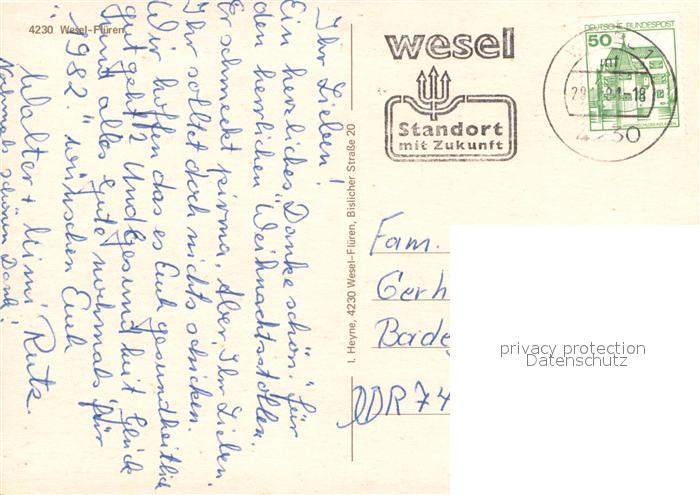 4230 Wesel-Flüren
Ihr Lieben!
Ein herzliches "Dankeschön" für
den herrlichen Weihnachtsstollen.
Er schmeckt prima. Aber, Ihr Lieben
Ihr solltet doch nichts schicken.
Wir hoffen das es Euch gesundheitlich
gut geht? Und Gesundheit, Glück
und alles Gute nochmals "für
1982." wünschen Euch
Walter + Mimi Rutz.
Nochmals schönen Dank!
I. Heyne, 4230 Wesel-Flüren, Bislicher Straße 20
wesel
Standort
mit Zukunft
DEUTSCHE BUNDESPOST
50
4230
Fam.
Gerh
Bade
DDR 74
privacy protection
Datenschutz